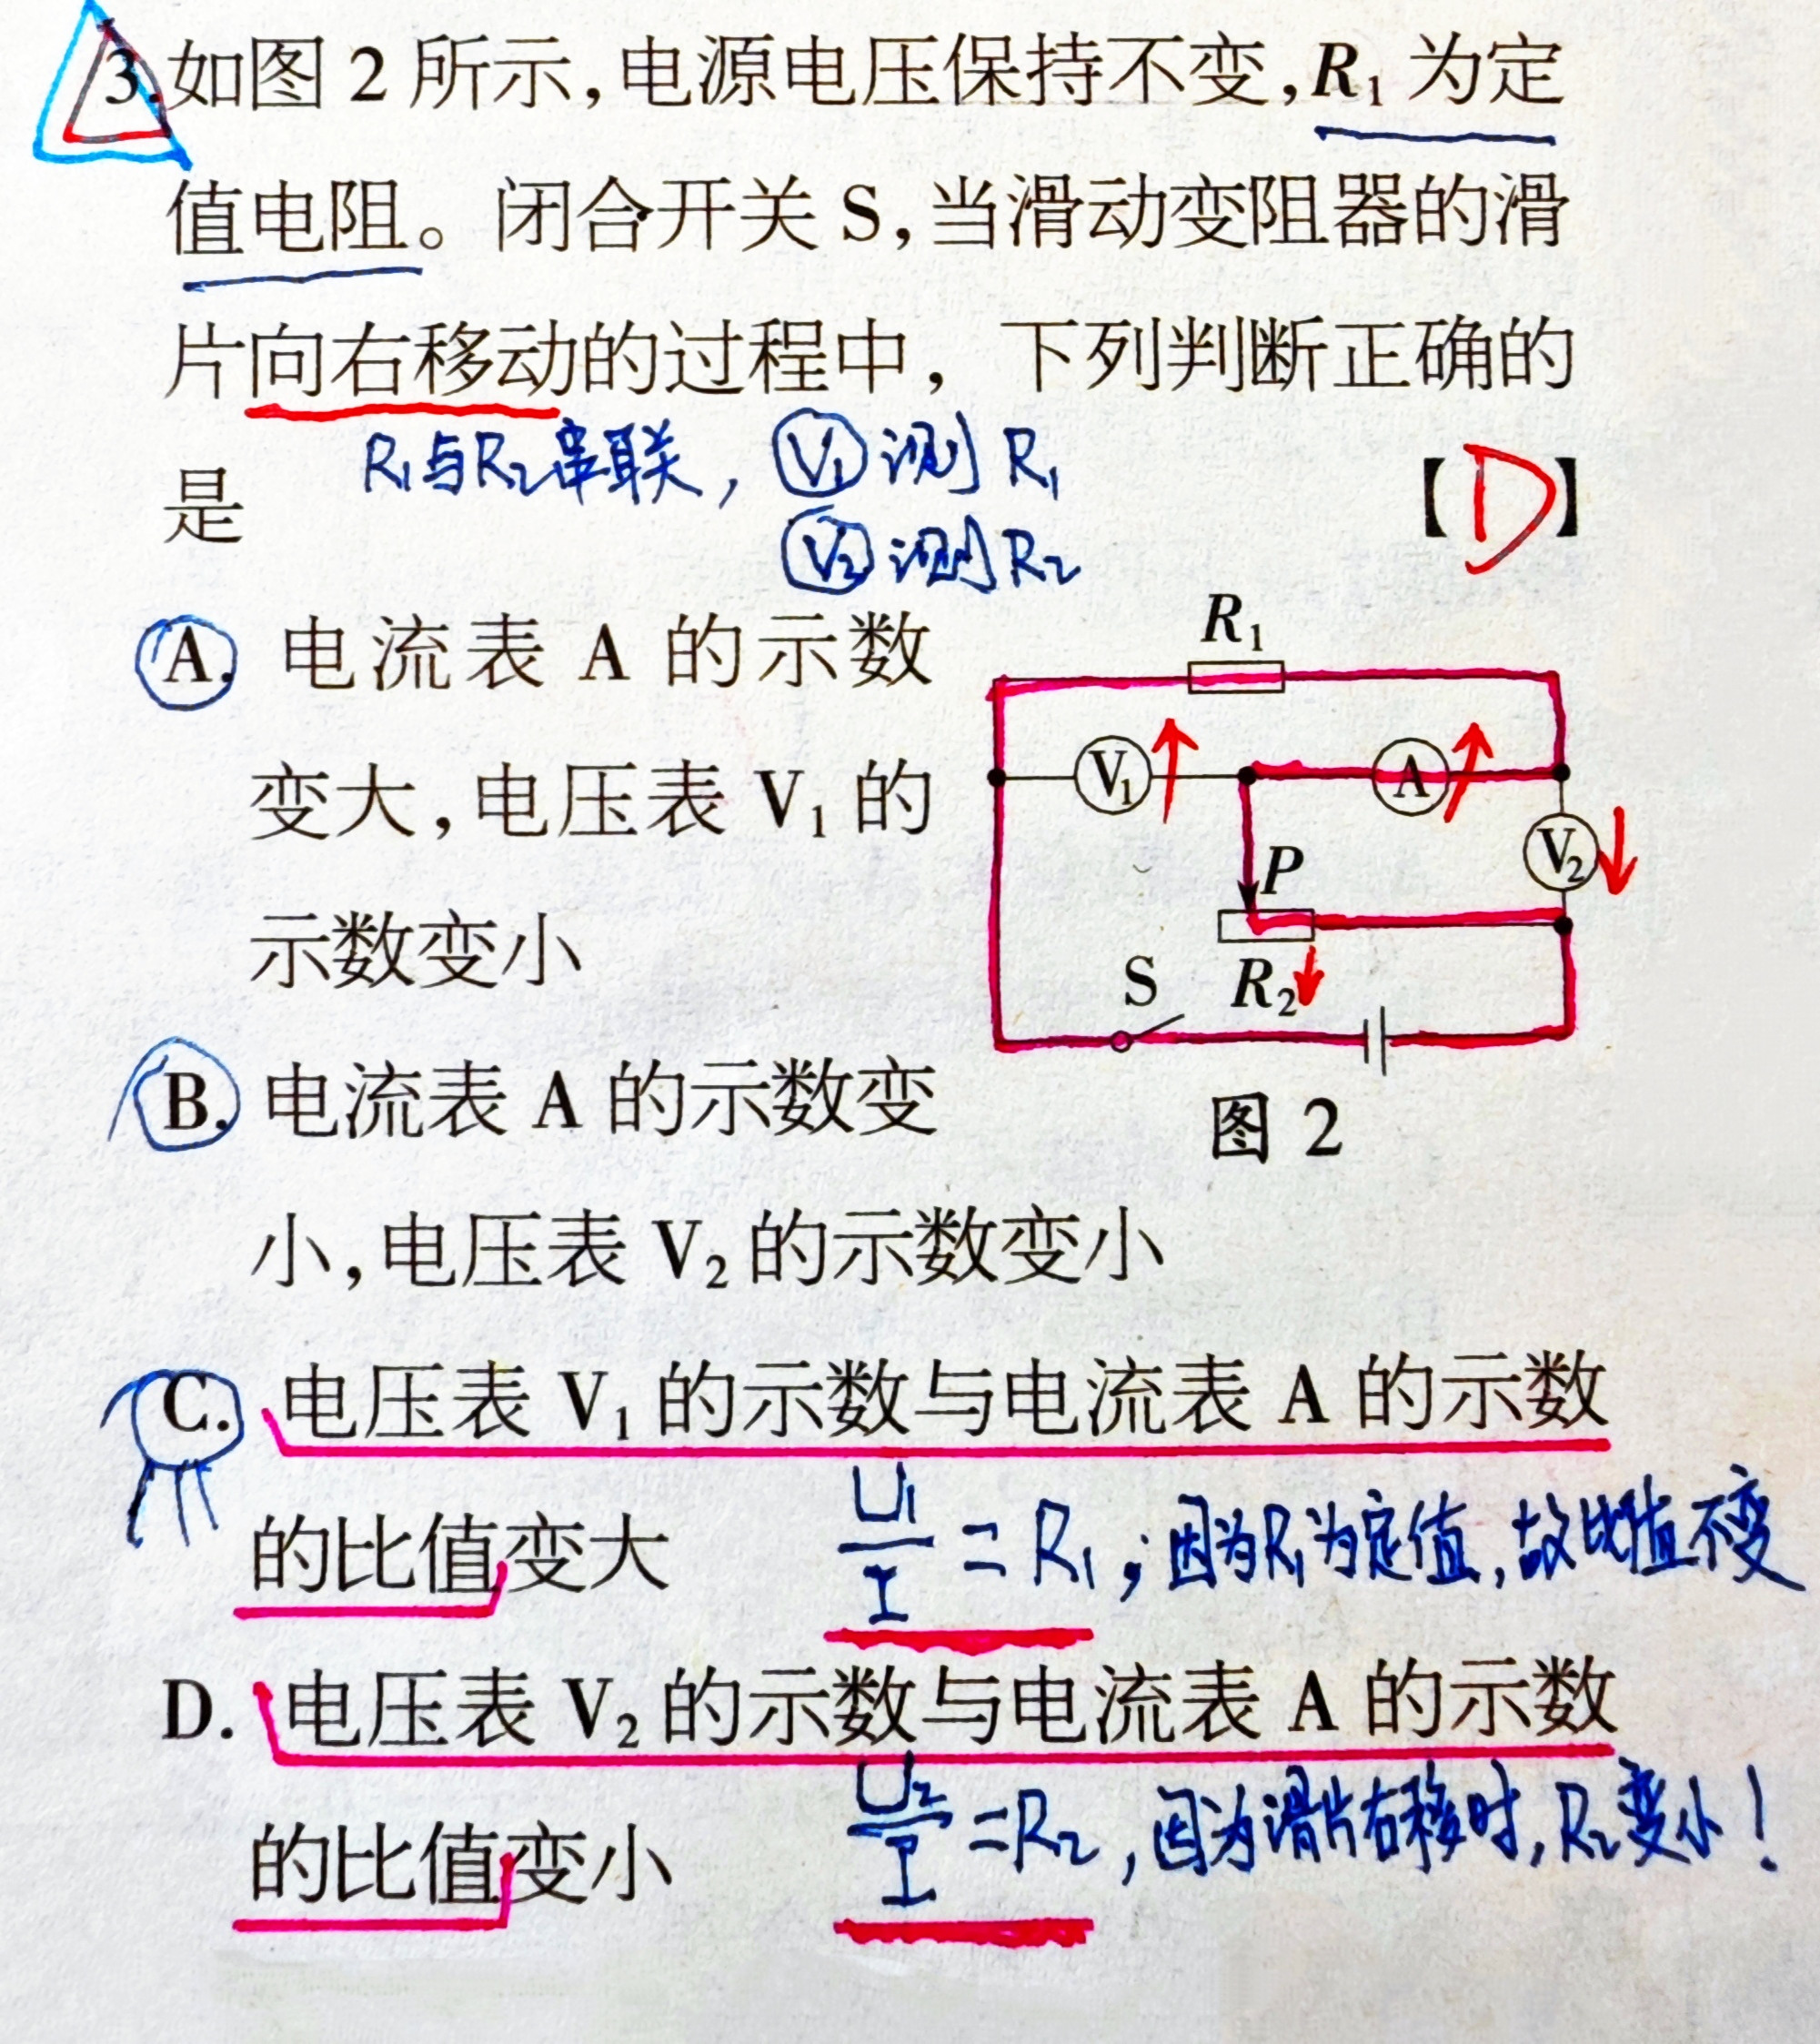 3.如图 2 所示,电源电压保持不变,R₁ 为定
值电阻。闭合开关 S,当滑动变阻器的滑
片向右移动的过程中，下列判断正确的
R₁与R₂串联，V₁测R₁
是 【D】
V₂测R₂
A. 电流表 A 的示数
变大,电压表 V₁ 的
示数变小
B. 电流表 A 的示数变
小,电压表 V₂ 的示数变小
R₁
V₁ A
V₂
P
S R₂
图 2
C. 电压表 V₁ 的示数与电流表 A 的示数
的比值变大 U₁/I = R₁；因为R₁为定值,故比值不变
D. 电压表 V₂ 的示数与电流表 A 的示数
的比值变小 U₂/I =R₂，因为滑片右移时,R₂变小！